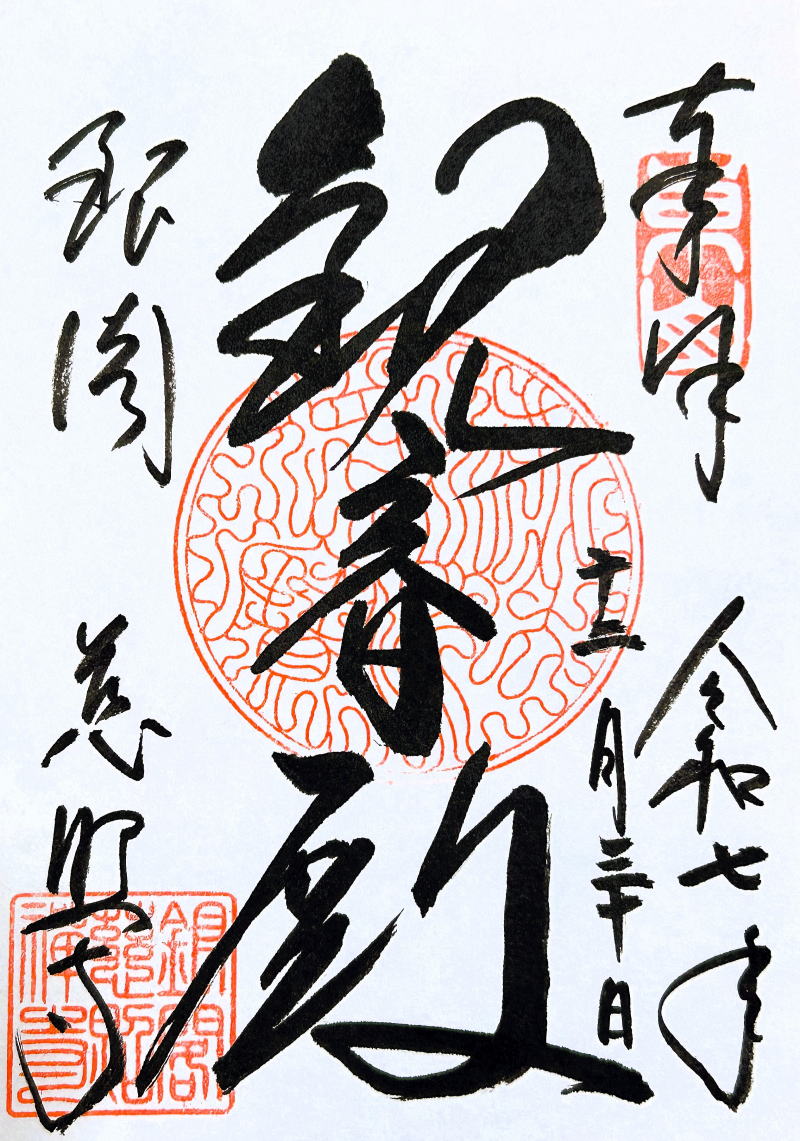 奉拝
令和七年
十二月三十日
観音殿
銀閣
慈照寺
銀閣
慈照
禅寺